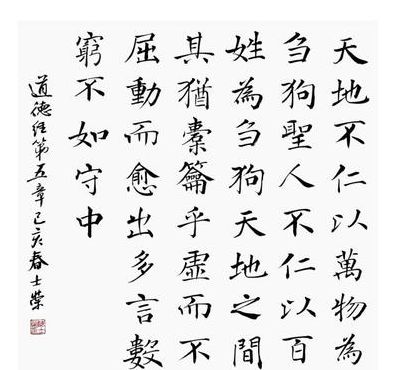 天地不仁以萬物為
刍狗聖人不仁以百
姓為刍狗天地之間
其猶橐籥乎虛而不
屈動而愈出多言數
窮不如守中
道德经第五章己亥春士榮